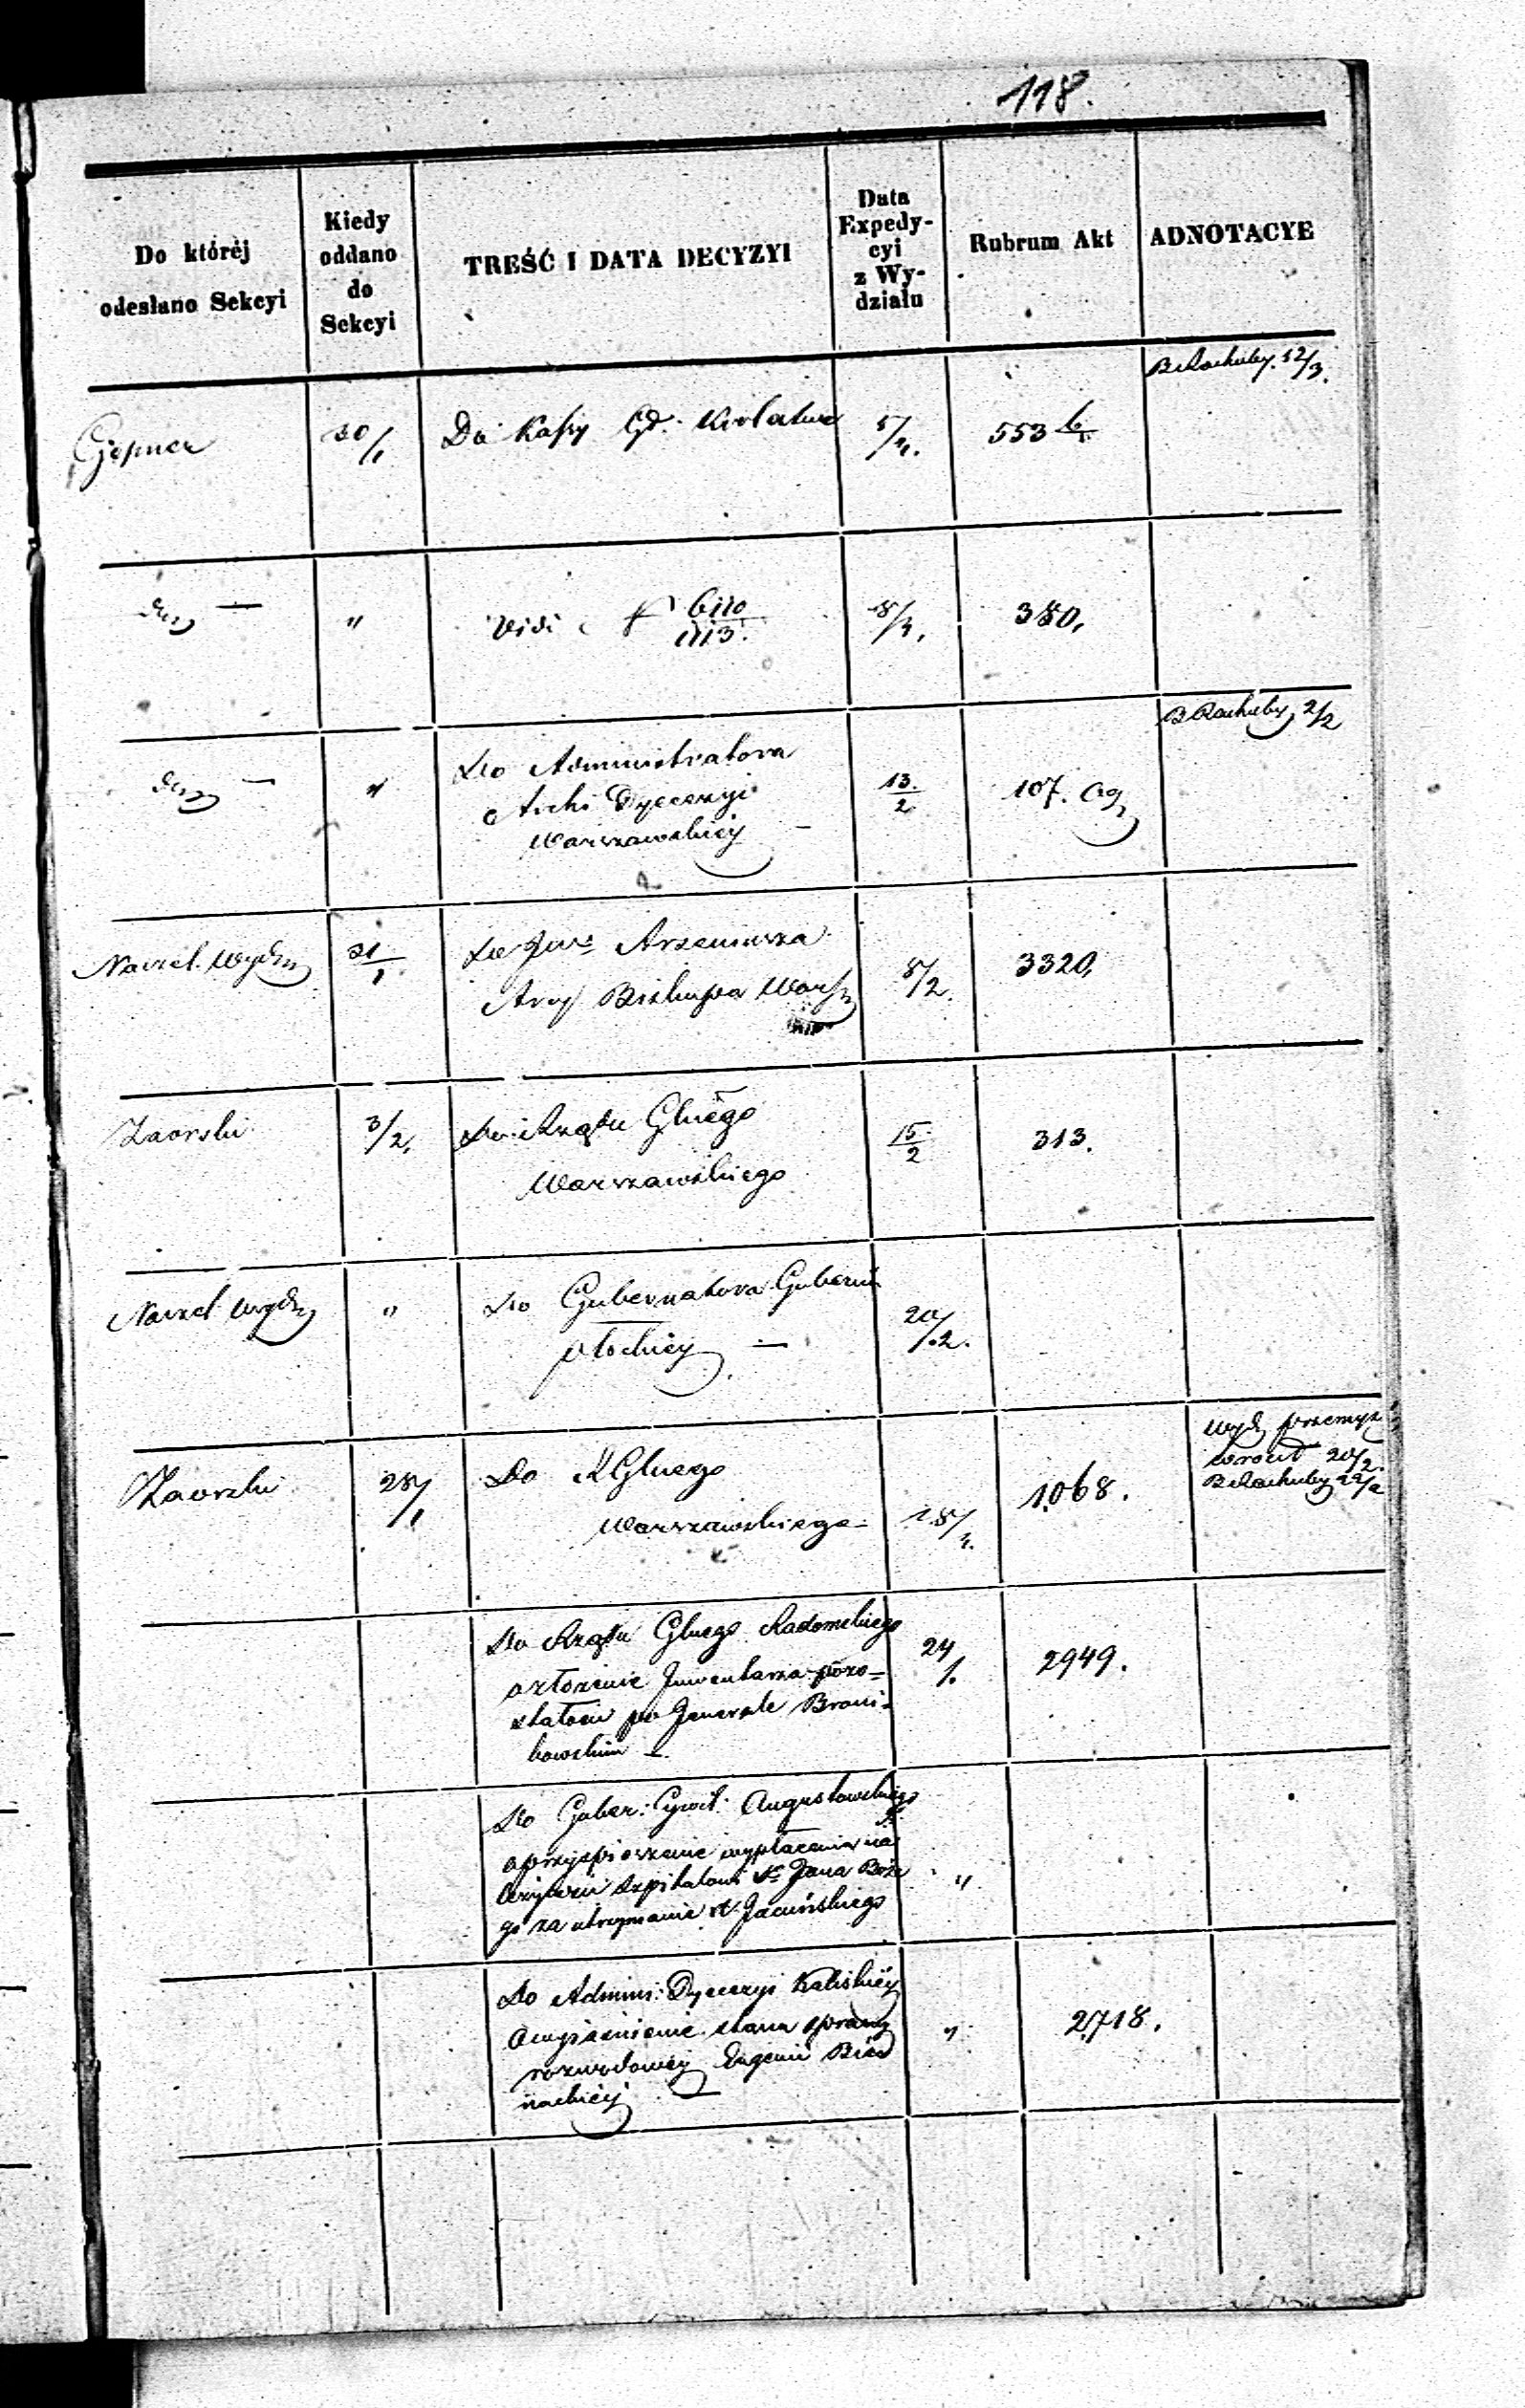 118.
Do któréj
odesłano Sekcyi
Kiedy
oddano
do
Sekcyi
TREŚĆ I DATA DECYZYI
Data
Expedy-
cyi
z Wy-
działu
Rubrum Akt
ADNOTACYE
B Rachuby 12/3.
30/1
Do Kassy
553
"
Vidi 6110/1113.
380,
B Rachuby 2/2
"
Do Administratora
Archi Dyecezyi
Warszawskiéj
13./2
107.
Naczel. Wydz
31/1
Do Arzeniusza
Arcy Biskupa Warsz
8/2.
3320,
Zaorski
3/2,
Do Rządu Glnego
Warszawskiego
15./2
313.
Naczel Wydz
"
Do Gubernatora Gubernii
płockiéj —
20/.2.
Zaorski
28/1
Do R Glnego
Warszawskiego
18/
1068.
Wyd przemysł
zwrócił 20/2.
B Rachuby 22/2
Do Rządu Glnego Radomskiego
o złożenie Inwentarza pozo-
stałości po Jenerale Broni-
kowskim
24/1.
2949.
Do Guber: Cywil: Augustowskiego
o przyspieszenie wypłacenia na
leżytości Szpitalowi Sgo Jana Boże
go za utrzymanie
"
Do Admini: Dyecezyi Kaliskiéj
o wyjaśnienie stanu sprawy
rozwodowéj Eugenii Bier
nackiéj
"
2718.